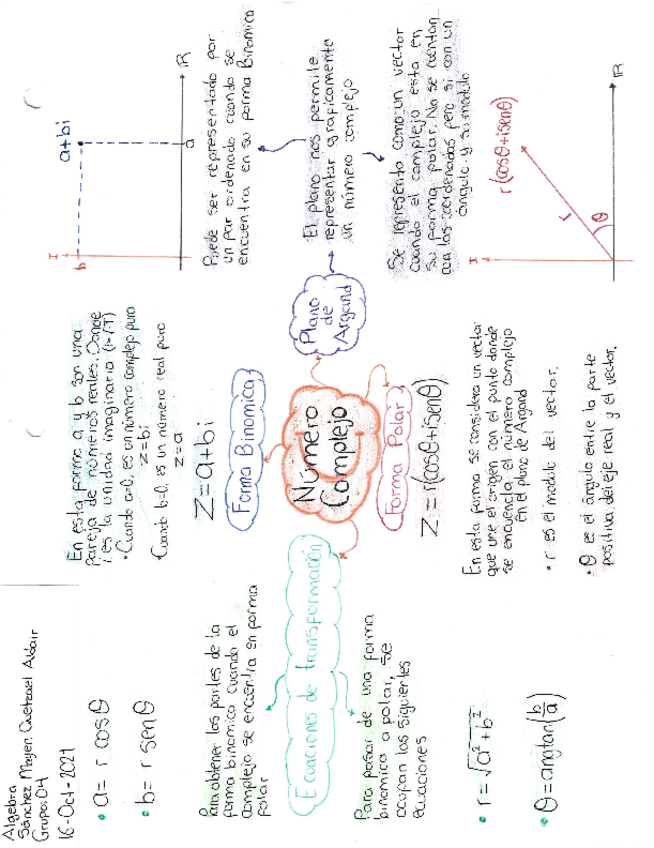 Algebra
Sánchez Mayen Quetzael Aldair
Grupo: 04
16-Oct-2021
• a= r cosθ
• b= r senθ
Para obtener las partes de la
forma binomica cuando el
complejo se encuentra en forma
polar
Ecuaciones de transformación
Para pasar de una forma
binomica a polar, se
ocupan las siguientes
ecuaciones
• r=√a²+b²
• θ=angtan(b/a)
En esta forma a y b son una
pareja de números reales. Donde
i es la unidad imaginaria (i=√-1)
• Cuando a=0, es un número complejo puro
z=bi
Cuando b=0, es un número real puro
z=a
Z=a+bi
Forma Binomica
Número
Complejo
Forma Polar
Z=r(cosθ+isenθ)
En esta forma se considera un vector
que une el origen con el punto donde
se encuencla el número complejo
en el plano de Argand
• r es el modulo del vector.
• θ es el ángulo entre la parte
positiva del eje real y el vector.
Plano
de
Argand
El plano nos permite
representar graficamente
un número complejo
I
b
a+bi
a
IR
Puede ser representado por
un par ordenado cuando se
encuentra en su forma Binomica
Se representa como un vector
cuando el complejo esta en
su forma polar. No se cuentan
con las coordenadas pero si con un
ángulo y su modulo
I
r(cosθ+isenθ)
r
θ
IR